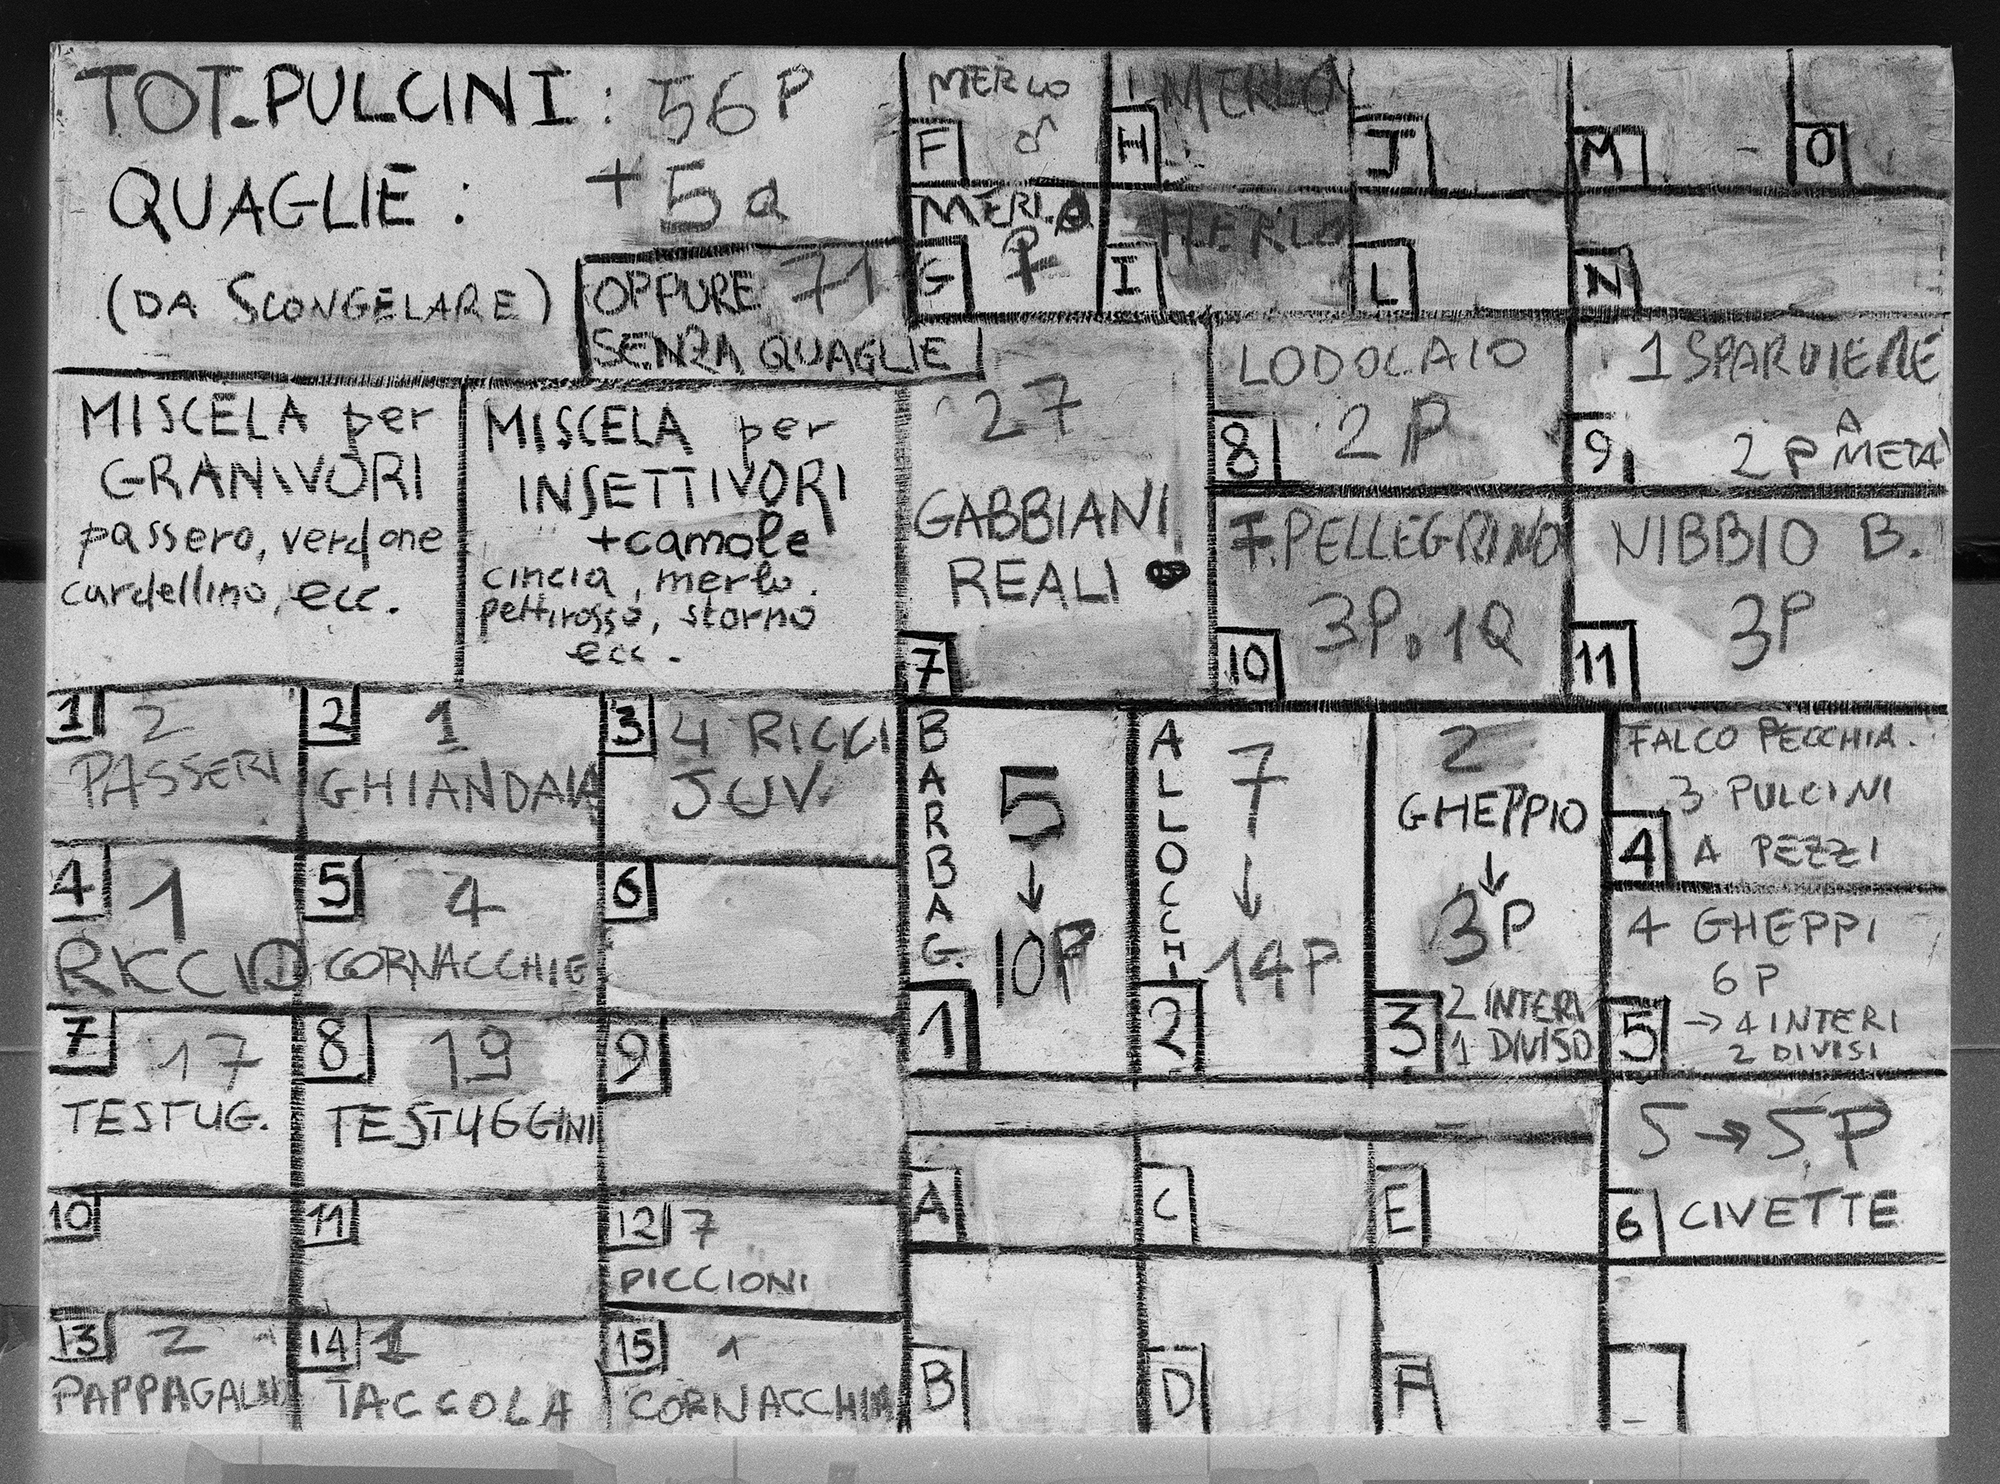 TOT. PULCINI : 56 P
QUAGLIE : + 5 Q
(DA SCONGELARE)
OPPURE 71
SENZA QUAGLIE
MERLO
F ♂
H MERLO
J
M -
O
MERLO
G ♀
I MERLO
L
N
MISCELA per
GRANIVORI
passero, verdone
cardellino, ecc.
MISCELA per
INSETTIVORI
+camole
cincia, merlo.
pettirosso, storno
ecc.
27
GABBIANI
REALI
7
LODOLAIO
8 2 P
1 SPARVIERE
9 2 P A METÀ
F. PELLEGRINO
3P. 1Q
10
NIBBIO B.
3P
11
1 2
PASSERI
2 1
GHIANDAIA
3 4 RICCI
JUV.
4 1
RICCIO
5 4
CORNACCHIE
6
7 17
TESTUG.
8 19
TESTUGGINI
9
10
11
12 7
PICCIONI
13 2
PAPPAGALLI
14 1
TACCOLA
15 1
CORNACCHIA
BARBAG.
5
↓
10P
1
ALLOCCHI
7
↓
14P
2
2
GHEPPIO
↓
3P
2 INTERI
3 1 DIVISO
FALCO PECCHIA.
3 PULCINI
4 A PEZZI
4 GHEPPI
6 P
5 → 4 INTERI
2 DIVISI
5 → 5 P
6 CIVETTE
A
C
E
B
D
F